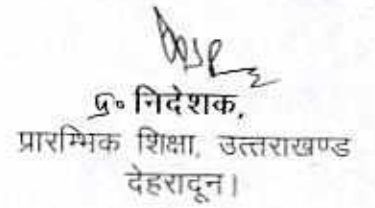 प्र० निदेशक,
प्रारम्भिक शिक्षा, उत्तराखण्ड
देहरादून।